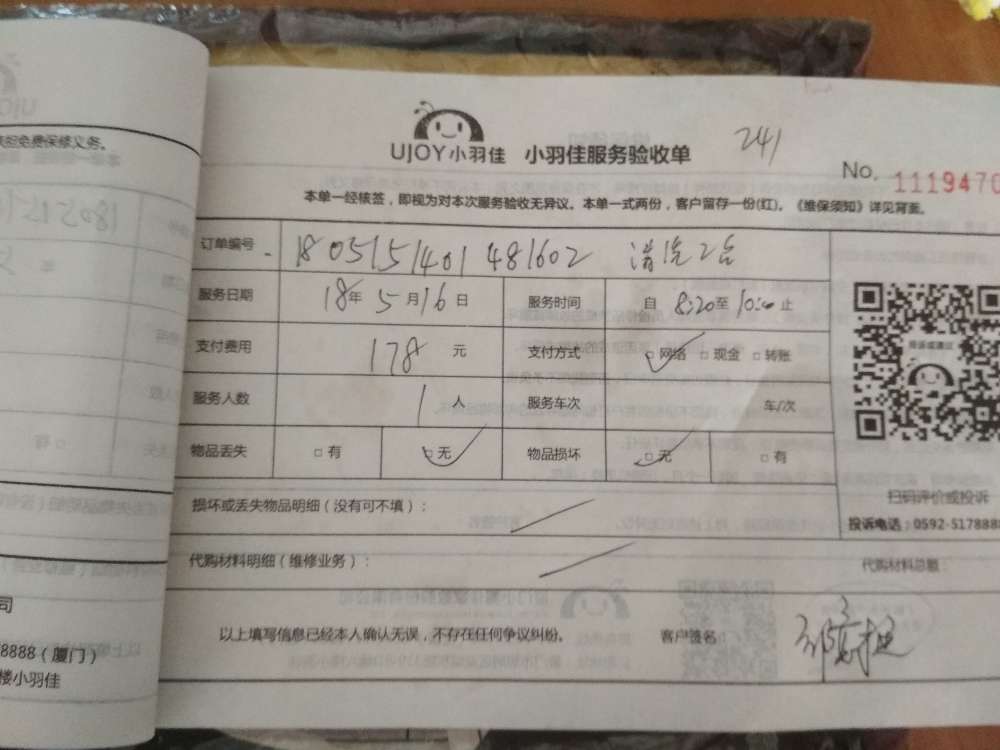 担免费保修义务。
UJOY小羽佳 小羽佳服务验收单
241
No. 1119470
本单一经核签，即视为对本次服务验收无异议。本单一式两份，客户留存一份(红)。《维保须知》详见背面。
订单编号 1805151401481602 清洗2台
服务日期 18年5月16日 服务时间 自8:20至10:00止
支付费用 178元 支付方式 □网络 □现金 □转账
服务人数 1人 服务车次 车/次
物品丢失 □有 □无 物品损坏 □无 □有
扫码评价或投诉
投诉电话：0592-5178888
损坏或丢失物品明细（没有可不填）：
代购材料明细（维修业务）： 代购材料总额：
以上填写信息已经本人确认无误，不存在任何争议纠纷。 客户签名：
司
8888（厦门）
楼小羽佳